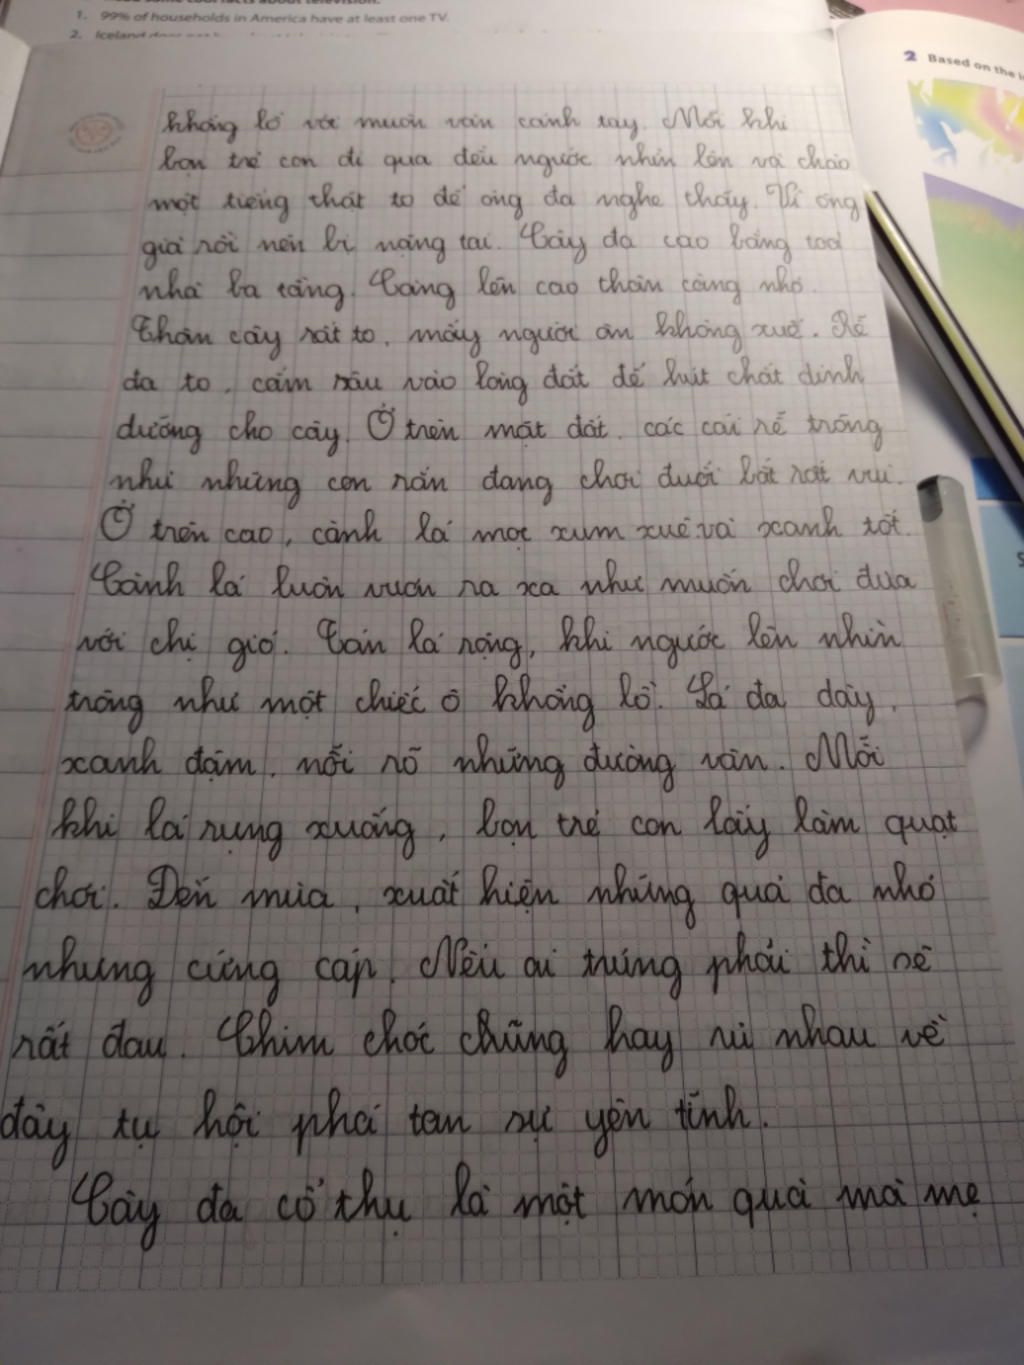 1. 99% of households in America have at least one TV.
2. Iceland
2 Based on the
khổng lồ với muôn vàn cánh tay. Mỗi khi
bọn trẻ con đi qua đều ngước nhìn lên và chào
một tiếng thật to để ông đa nghe thấy. Vì ông
già rồi nên bị nặng tai. Cây đa cao bằng toà
nhà ba tầng. Càng lên cao thân càng nhỏ.
Thân cây rất to, mấy người ôm không xuể. Rễ
đa to, cắm sâu vào lòng đất để hút chất dinh
dưỡng cho cây. Ở trên mặt đất, các cái rễ trông
như những con rắn đang chơi đuổi bắt rất vui.
Ở trên cao, cành lá mọc xum xuê và xanh tốt.
Cành lá luôn vươn ra xa như muốn chơi đùa
với chị gió. Tán lá rộng, khi ngước lên nhìn
trông như một chiếc ô khổng lồ. Lá đa dày,
xanh đậm, nổi rõ những đường vân. Mỗi
khi lá rụng xuống, bọn trẻ con lấy làm quạt
chơi. Đến mùa, xuất hiện những quả đa nhỏ
nhưng cứng cáp. Nếu ai trúng phải thì sẽ
rất đau. Chim chóc chũng hay rủ nhau về
đây tụ hội phá tan sự yên tĩnh.
Cây đa cổ thụ là một món quà mà mẹ